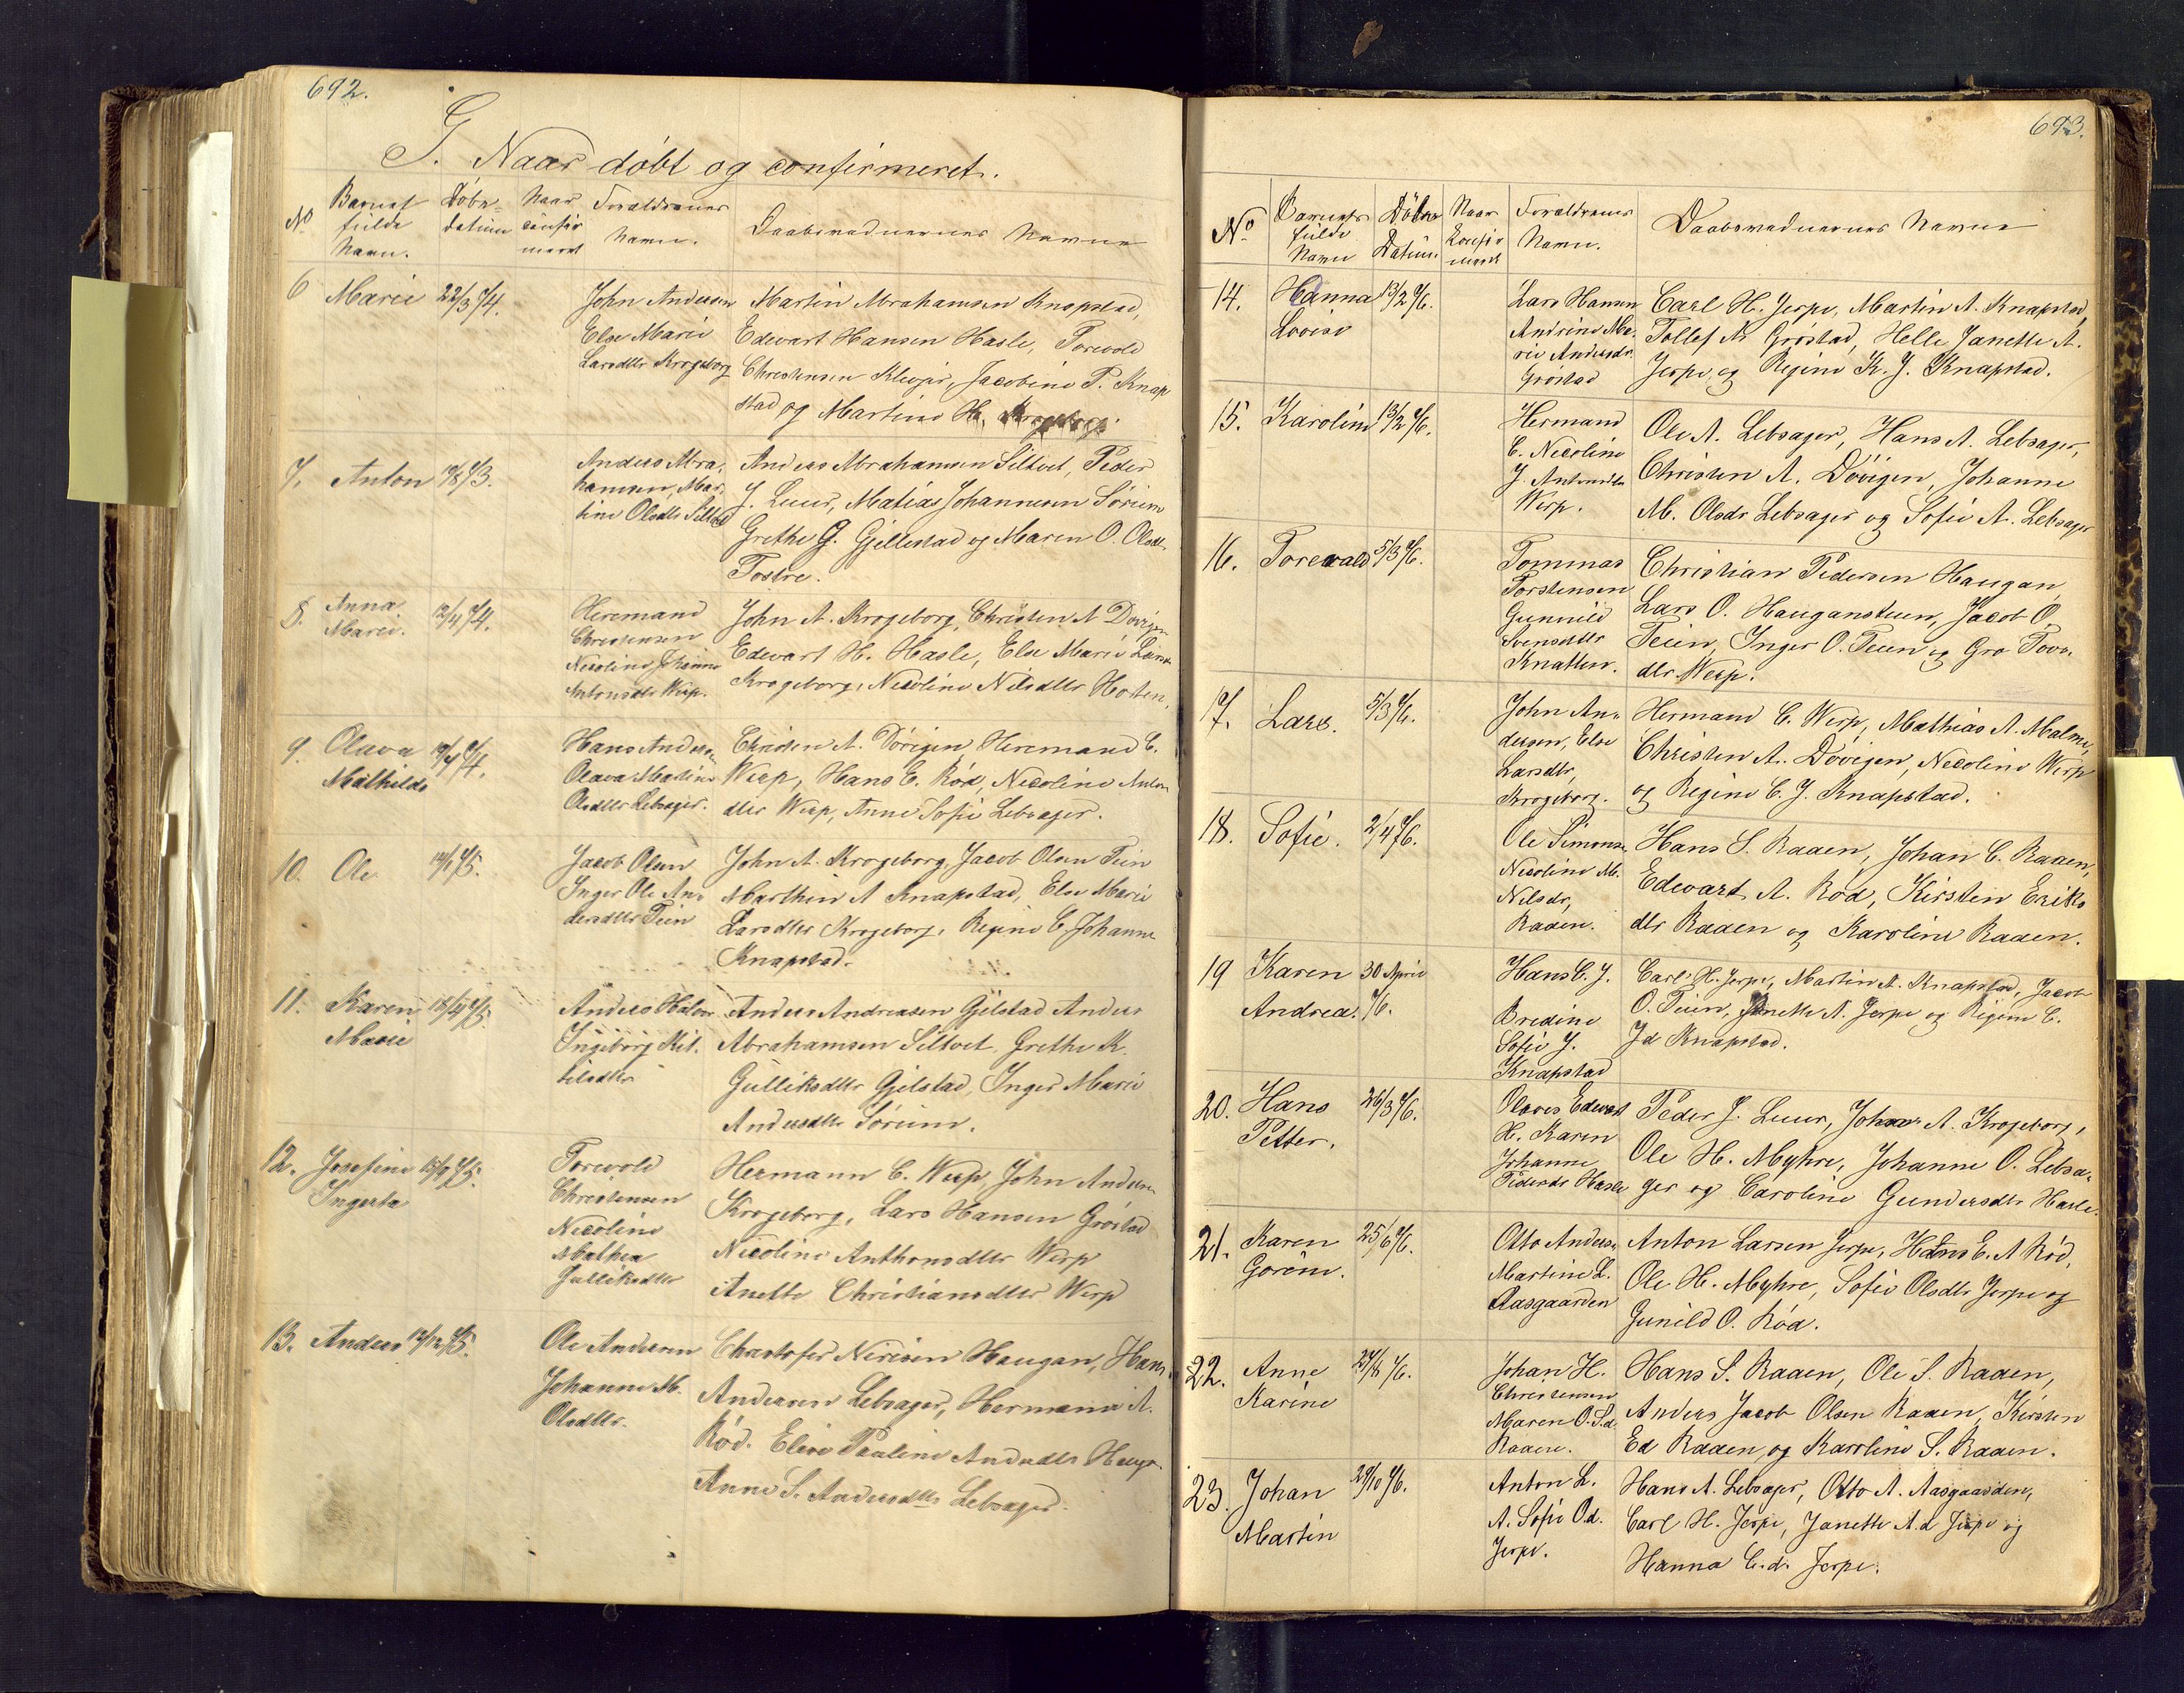 692.
G. Naar döbt og confirmeret.
No
Barnets
fulde
Navn.
Döbe-
datum
Naar
confir
meret
Forældrenes
Navn.
Daabsvidnernes Navne
6 Marie 22/3 74.
John Andersen
Else Marie
Larsdtr Krogeborg
Martin Abrahamsen Knapstad,
Edevart Hansen Hasle, Torevold
Christensen Klevjer, Jacobine P. Knap
stad og Martine H. Krogeborg.
7. Anton 73.
Anders Abra-
hamsen, Mar-
tine Olsdtr Siltvet
Anders Abrahamsen Siltvet, Peder
J. Luur, Matias Johannesen Sörum
Grethe G. Gjellestad og Maren O. Olsdtr
Tostre.
8. Anna
Marei.
12/4 74.
Heremand
Christensen
Nicoline Johanne
Antonsdtr Werp.
John A. Krogeborg, Christen A Dövigen
Edevart H. Hasle, Else Marie Lars
Krogeborg, Nicoline Nilsdtr Hosten,
9. Olava
Mathilde
19/4 74.
Hans Andersen
Olava Martine
Olsdtr Lebsager.
Christen A. Dövigen Heremand C.
Werp, Hans E. Röd, Nicoline Anton
dtr Werp, Anne Sofie Lebsager.
10. Ole 75.
Jacob Olsen
Inger Ole An-
dersdtr Teien
John A. Krogeborg, Jacob Olsen Teien
Marthin A Knapstad, Else Marie
Larsdtr Krogeborg, Regine C. Johanne
Knapstad.
11. Karen
Marie
18/4 75.
Anders Halvor
Ingiborg Kit-
tilsdtr
Anders Andreasen Gjelstad Anders
Abrahamsen Siltvet Grethe K.
Gulliksdtr Gjelstad, Inger Marie
Andersdtr Sörum.
12. Josefine
Ingerta
15/9 75.
Torevold
Christensen
Nicoline
Mathea
Gulliksdtr
Hermann C. Werp, John Andersen
Krogeborg, Lars Hansen Gröstad
Nicoline Anthonsdtr Werp
Anette Christiansdtr Werp
13. Anders 12/12 75.
Ole Andersen
Johanne M.
Olsdtr.
Christofer Nirisen Haugan, Hans
Andersen Lebsager, Hermann A.
Röd. Elise Pauline Andersdtr Haugan
Anne S. Andersdtr Lebsager.
693.
No.
Barnets
fulde
Navn
Döbe
Datum.
Naar
Konfir
meret
Forældrenes
Navn.
Daabsvidnernes Navne
14. Hanna
Lovise
13/2 76.
Lars Hansen
Andrine Ma-
rie Andersdr.
Gröstad
Carl H. Jerpe, Martin A. Knapstad,
Tollef N. Gröstad, Helle Janette A.
Jerpe, og Regine K. J. Knapstad.
15. Karoline 13/2 76.
Hermand
C. Nicoline
J. Antonsdtr
Werp.
Ole A. Lebsager, Hans A. Lebsager,
Christen A. Dövigen, Johanne
M. Olsdr Lebsager og Sofie A. Lebsager
16. Torevald 5/3 76.
Tommas
Torstensen
Gunnild
Svensdtr
Knatten.
Christian Pedersen Haugan,
Lars O. Hauganstuen, Jacob O.
Teien, Inger O. Teien og Gro Tov-
dtr Werp.
17. Lars. 5/3 76.
John An-
dersen, Else
Larsdtr,
Krogeborg.
Hermand C. Werp, Mathias A. Malmr,
Christen A. Dövigen, Nicoline Werp
og Regine C. J. Knapstad.
18. Sofie. 2/4 76.
Ole Simonsen
Nicoline M.
Nilsdr,
Raaen.
Hans S. Raaen, Johan C. Raaen,
Edevart A. Röd, Kirsten Eriks
dtr Raaen og Karoline Raaen.
19 Karen
Andrea.
30 April
76.
Hans C. J.
Bredine
Sofie J.
Knapstad
Carl H. Jerpe, Martin A. Knapstad, Jacob
O. Teien, Janette A. Jerpe og Regine C.
Jd Knapstad.
20. Hans
Petter.
26/3 76.
Olaves Edevart
H. Karen
Johanne
Pedersdr Hasle
Peder J. Luur, John A. Krogeborg,
Ole H. Myhre, Johanne O. Lebsa-
ger og Caroline Gundersdtr Hasle.
21. Karen
Gorine.
25/6 76.
Otto Andersen
Martine L.
Aasgaarden
Anton Larsen Jerpe, Hans E. A Röd,
Ole H. Myhre, Sofie Olsdtr Jerpe og
Gunild O. Röd.
22. Anne
Karine
27/8 76.
Johan H.
Christensen
Maren O. S.d.
Raaen.
Hans S. Raaen, Ole S. Raaen,
Anders Jacob Olsen Raaen, Kirsten
Ed Raaen og Karoline S. Raaen.
23. Johan
Martin
29/10 76.
Anton L.
A. Sofie O.d.
Jerpe.
Hans A. Lebsager, Otto A. Aasgaarden,
Carl H. Jerpe, Janette A.d Jerpe og
Hanna C.d. Jerpe.